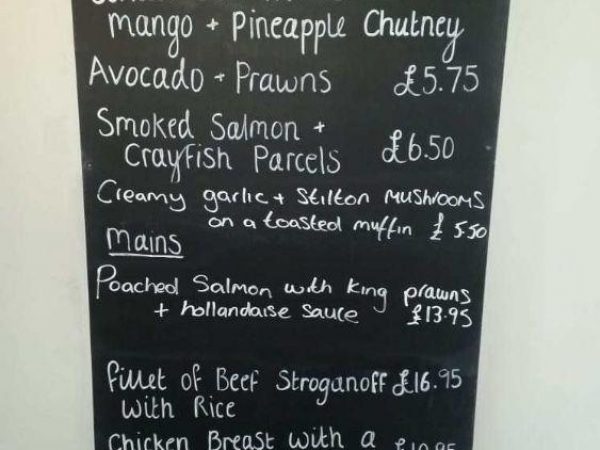 mango + Pineapple Chutney
Avocado + Prawns £5.75
Smoked Salmon +
Crayfish Parcels £6.50
Creamy garlic + Stilton MUSHROOMS
on a toasted muffin £5.50
Mains
Poached Salmon with king prawns
+ hollandaise sauce £13.95
fillet of Beef Stroganoff £16.95
with Rice
Chicken Breast with a